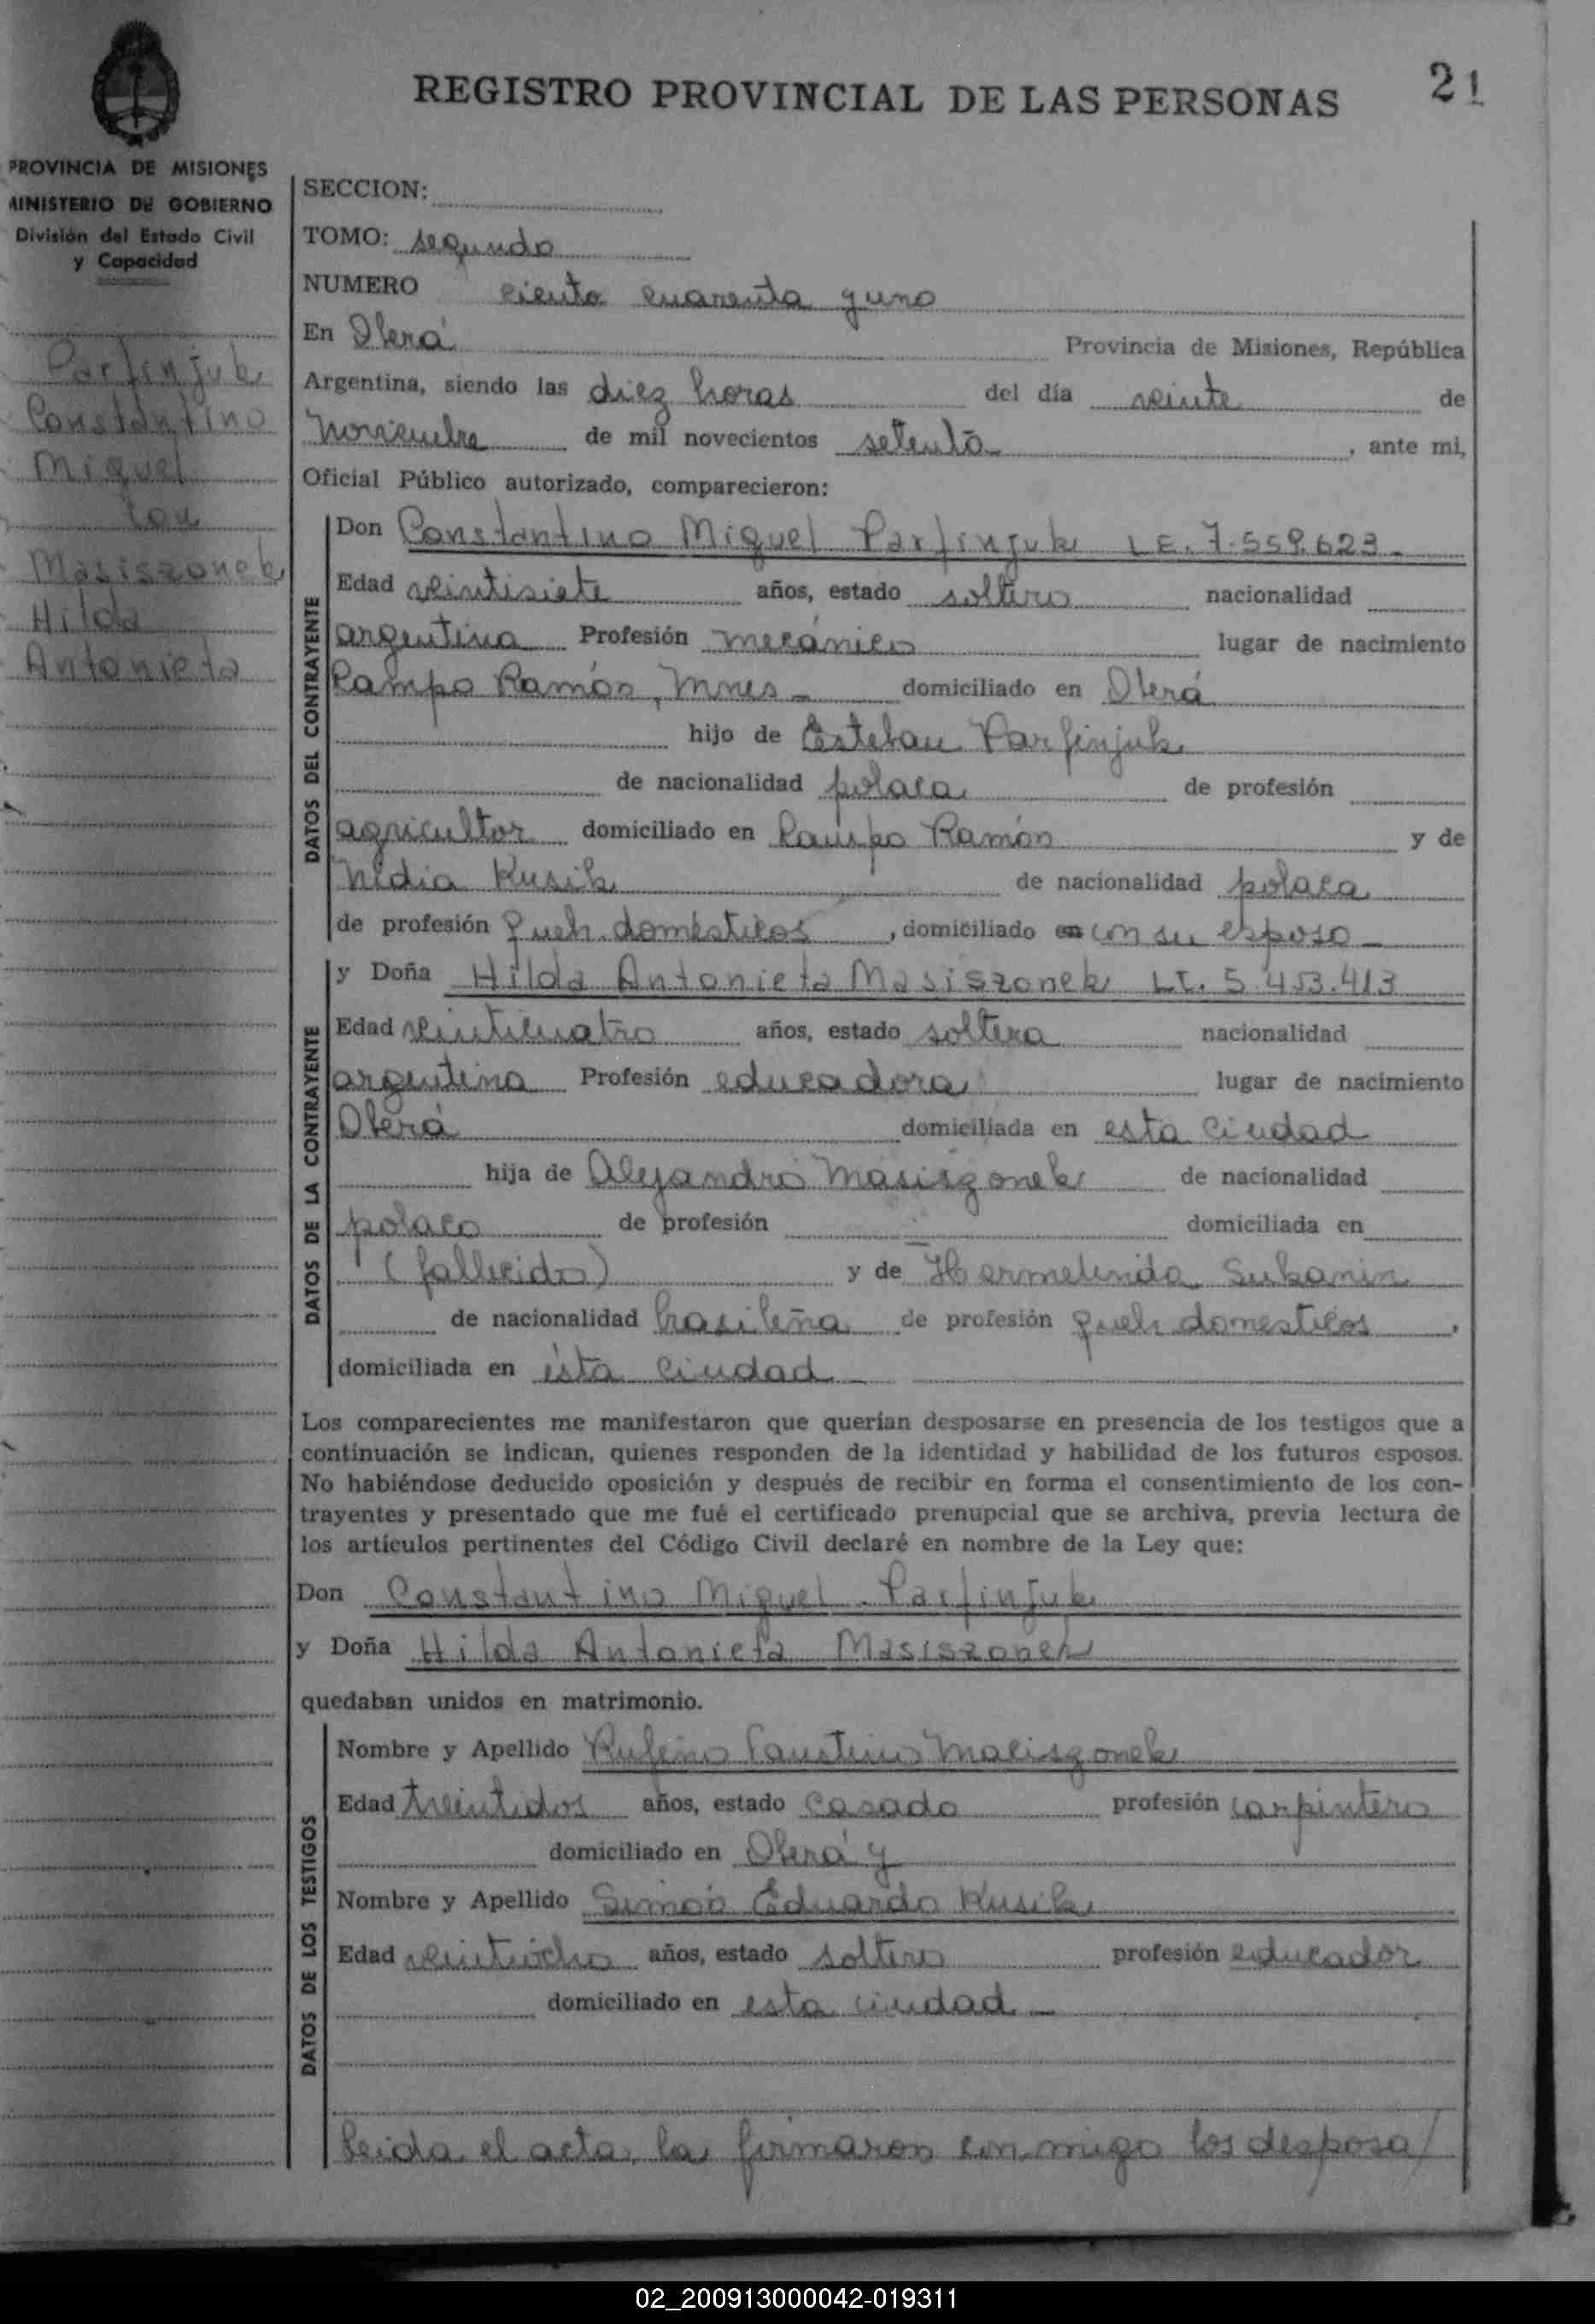 REGISTRO PROVINCIAL DE LAS PERSONAS
21
PROVINCIA DE MISIONES
MINISTERIO DE GOBIERNO
División del Estado Civil
y Capacidad
Parfinjuk
Constantino
Miguel
con
Masiszonek
Hilda
Antonieta
SECCION:
TOMO: segundo
NUMERO ciento cuarenta y uno
En Oberá Provincia de Misiones, República
Argentina, siendo las diez horas del día veinte de
Noviembre de mil novecientos setenta, ante mi,
Oficial Público autorizado, comparecieron:
DATOS DEL CONTRAYENTE
Don Constantino Miguel Parfinjuk L.E. 7.559.623.-
Edad veintisiete años, estado soltero nacionalidad
argentina Profesión mecánico lugar de nacimiento
Campo Ramón, Mnes - domiciliado en Oberá
hijo de Esteban Parfinjuk
de nacionalidad polaca de profesión
agricultor domiciliado en Campo Ramón y de
Nidia Kusik de nacionalidad polaca
de profesión Queh. domésticos, domiciliado en con su esposo -
DATOS DE LA CONTRAYENTE
y Doña Hilda Antonieta Masiszonek L.C. 5.453.413
Edad veinticuatro años, estado soltera nacionalidad
argentina Profesión educadora lugar de nacimiento
Oberá domiciliada en esta ciudad
hija de Alejandro Masiszonek de nacionalidad
polaco de profesión domiciliada en
(fallecido) y de Hermelinda Sukanin
de nacionalidad brasileña de profesión queh domesticos,
domiciliada en ésta ciudad -
Los comparecientes me manifestaron que querían desposarse en presencia de los testigos que a
continuación se indican, quienes responden de la identidad y habilidad de los futuros esposos.
No habiéndose deducido oposición y después de recibir en forma el consentimiento de los con-
trayentes y presentado que me fué el certificado prenupcial que se archiva, previa lectura de
los artículos pertinentes del Código Civil declaré en nombre de la Ley que:
Don Constantino Miguel Parfinjuk
y Doña Hilda Antonieta Masiszonek
quedaban unidos en matrimonio.
DATOS DE LOS TESTIGOS
Nombre y Apellido Rufino Faustino Masiszonek
Edad treintidos años, estado casado profesión carpintero
domiciliado en Oberá y
Nombre y Apellido Simón Eduardo Kusik
Edad veintiocho años, estado soltero profesión educador
domiciliado en esta ciudad -
Leida el acta, la firmaron conmigo los desposa/
02_200913000042-019311